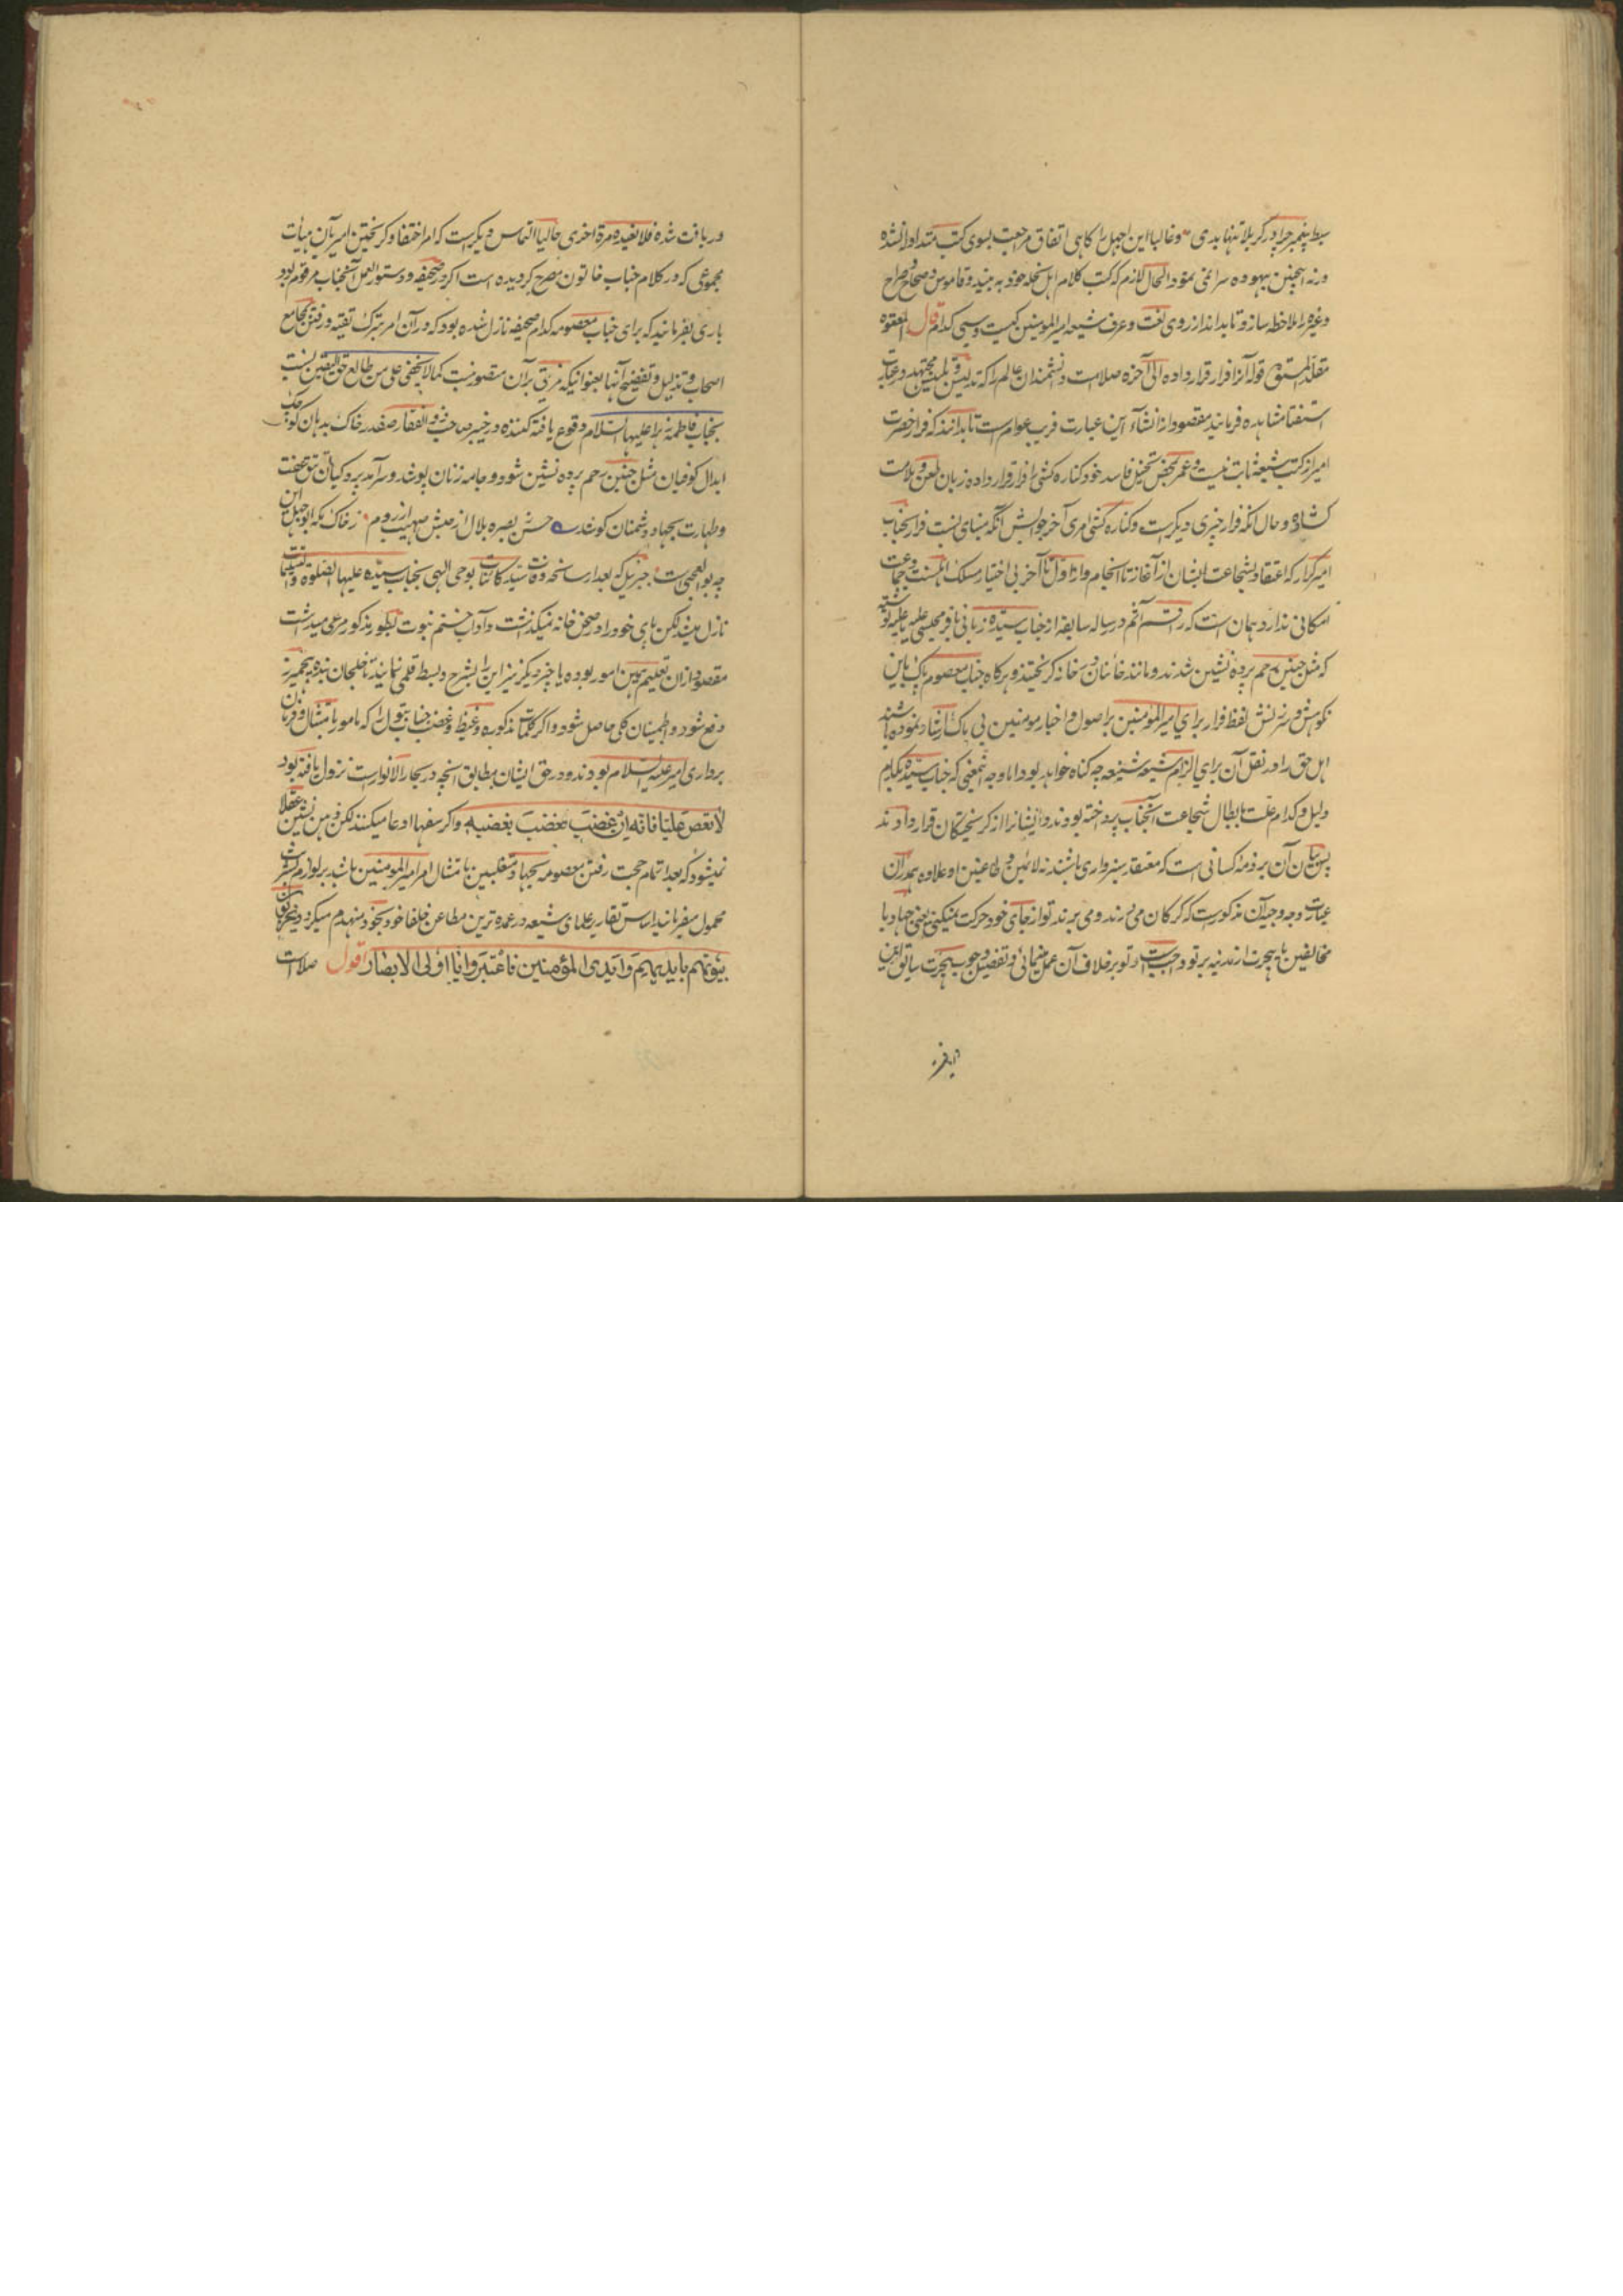 سبط پیغمبر چرا در کربلا تنها بدی وغالبا این اجهل را گاهی اتفاق مراجعت بسوی کتب متداوله نشده
ورنه اینچنین بیهوده سرائی نمود الحال لازم که کتب کلام اهل نحله خود به بیند وقاموس وصحاح وصراح
وغیره را ملاحظه سازد تا بداند از روی لغت وعرف شیعه امیرالمومنین کیست وسبی کدام قال المعتوه
قوله آنرا فرار قرار داده الی آخره صلامت دانشمندان عالم را که تدلیس وتلبیس مجتهد وعبارت
استفتا مشاهده فرمایند مقصود از انشاء این عبارت فریب عوام است تا بدانند که فرار حضرت
امیر از کتب شیعه ثابت نیست وعمر محض بتخیل فاسد خود کناره کشی را فرار قرار داده زبان لعن وملامت
کشاده وحال آنکه فرار چیزی دیگر است وکناره کشی امری آخر جوابش آنکه مبنای نسبت فرار بجناب
امیر کرار که اعتقاد شجاعت ایشان از آغاز تا انجام واز اول تا آخر بی اختیار مسلک اهلسنت وجماعت
امکانی ندارد همان است که راقم آثم در رساله سابقه از جناب سیده زبانی باقر مجلسی علیه ما علیه نوشته
که مثل جنین رحم پرده نشین شدند ومانند خائنان در خانه گریختند وهرگاه جناب معصوم پاک باین
نکوهش وسرزنش لفظ فرار برای امیرالمومنین بر اصول واخبار مومنین بی باک ارشاد نموده باشند
اهل حق را در نقل آن برای الزام شیعه شنیعه چه گناه خواهد بود اما وجه اینمعنی که جناب سیده بکدام
دلیل وکدام علت بابطال شجاعت آنجناب پرداخته بودند وایشانرا از گریختگان قرار دادند
پس بیان آن بر ذمه کسانی است که معتقد سبزواری باشند نه لائمین وطاعنین او علاوه بر آن
عبارت وجه وجیه آن مذکور است که گرگان می درند ومی برند تو از جای خود حرکت نمیکنی یعنی جهاد با
مخالفین یا هجرت از مدینه بر تو واجب است وتو بر خلاف آن عمل مینمائی وتفصیل وجوب هجرت سابق ازین
دریافت شده فلا نعیده مرة اخری حالیا التماس دیگر است که امر اختفا وگریختن امیر بآن هیأت
مجموعی که در کلام جناب خاتون مصرح گردیده است اگر در صحیفه ودستورالعمل آنجناب مرقوم بود
باری بفرمایند که برای جناب معصومه کدام صحیفه نازل شده بود که در آن امر بترک تقیه ورفتن بمجامع
اصحاب وتذلیل وتفضیح آنها بعنوانیکه مزیتی بر آن متصور نیست کما لا یخفی علی من طالع حق الیقین نسبت
بجناب فاطمه زهرا علیها السلام وقوع یافته کننده در خیبر صاحب ذوالفقار صفدر خاک بدهان
ابدال کوفیان مثل جنین رحم پرده نشین شود وجامه زنان پوشد وسرآمد پردگیان تتق عفت
وطهارت بجهاد دشمنان کوشد حسن ز بصره بلال از حبش صهیب از روم ز خاک مکه ابوجهل این
چه بوالعجبی است جبرئیل که بعد از سانحه وفات سید کائنات بوحی الهی بجناب سیده علیها الصلوة والتسلیمات
نازل میشد لکن پای خود را در صحن خانه نمیگذاشت وآداب ختم نبوت بطور مذکور مرعی میداشت
مقصود از آن تعلیم همین امور بوده یا چیز دیگر نیز این را بشرح وبسط قلمی نمایند تا خلجان بنده هیچمیرز
دفع شود واطمینان کلی حاصل شود واگر کلمات مذکوره وغیظ وغضب جناب بتول را که مامور بامتثال وفرمان
برداری امیر علیه السلام بودند ودر حق ایشان مطابق آنچه در بحار الانوار است نزول یافته بود
لا تعص علیا فانه ان غضب غضبت بغضبه واگر سفها ادعا میکنند لکن ذهن نشین عقلا
نمیشود که بعد اتمام حجت رفتن معصومه بجهاد متغلبین بامتثال امر امیرالمومنین باشد بر لوازم بشریت
محمول میفرمایند اساس تقاریر علمای شیعه در عمده ترین مطاعن خلفا خود بخود منهدم میگردد
بیوتهم بایدیهم وایدی المؤمنین فاعتبروا یا اولی الابصار اقول صلامت